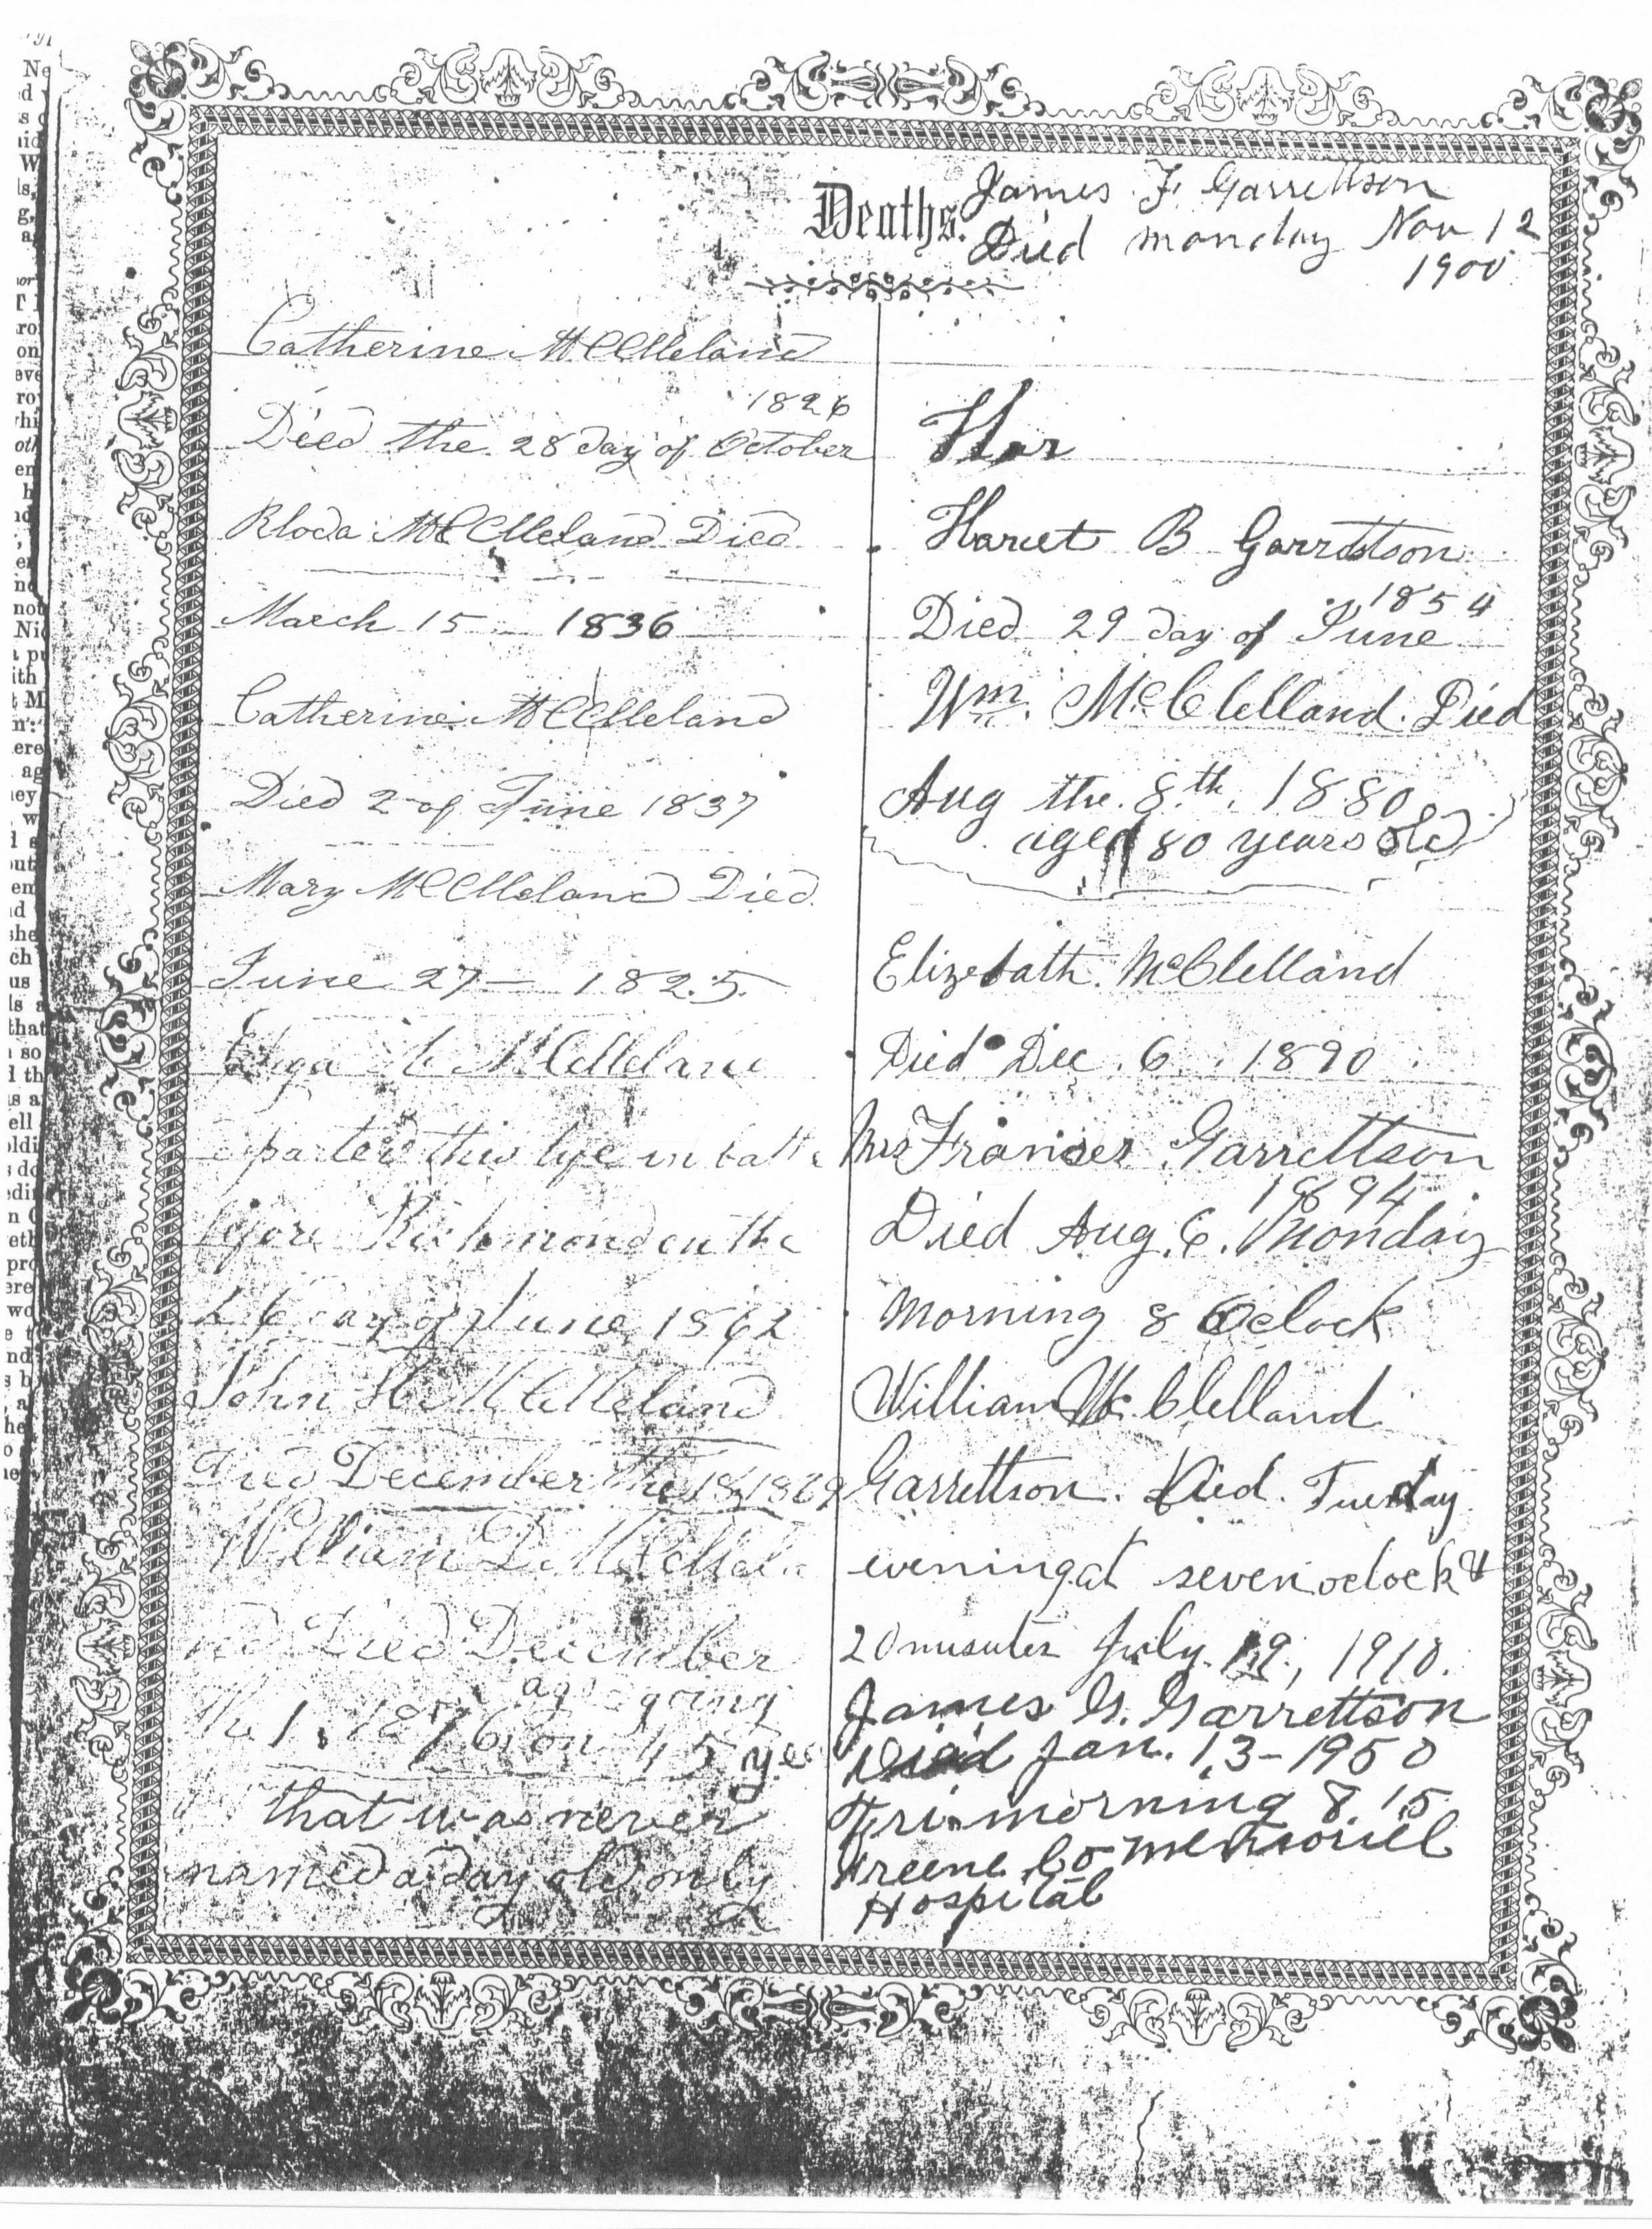 Deaths.
James F. Garrettson
Died monday Nov 12
1900
Catherine McClleland
1826
Died the 28 day of October
Rhoda McClleland Died
March 15 1836
Catherine McClleland
Died 2 of June 1837
Mary McClleland Died
June 27 — 1825.
McClleland
departed this life in batt
before Richmond on the
26 day of June 1862
John H McClleland
Died December the 18 1869
William D. McClela
nd Died December
age going
the 1. 1876 on 45 ye
that was never
named a day old only
Har
Hariet B Garrettson
1854
Died 29 day of June
Wm. McClelland. Died
Aug the 8th. 1880
aged 80 years old
Elizebath. McClelland
Died Dec. 6. 1890
Mrs Franses Garrettson
1894
Died Aug. 6. Monday
Morning 8 Oclock
William McClelland
Garrettson. Died. Tuesday
evening at seven oclock &
20 minutes July. 19, 1910.
James G. Garrettson
Died Jan. 13-1950
Fri. morning 8.15
Greene Co memorial
Hospital